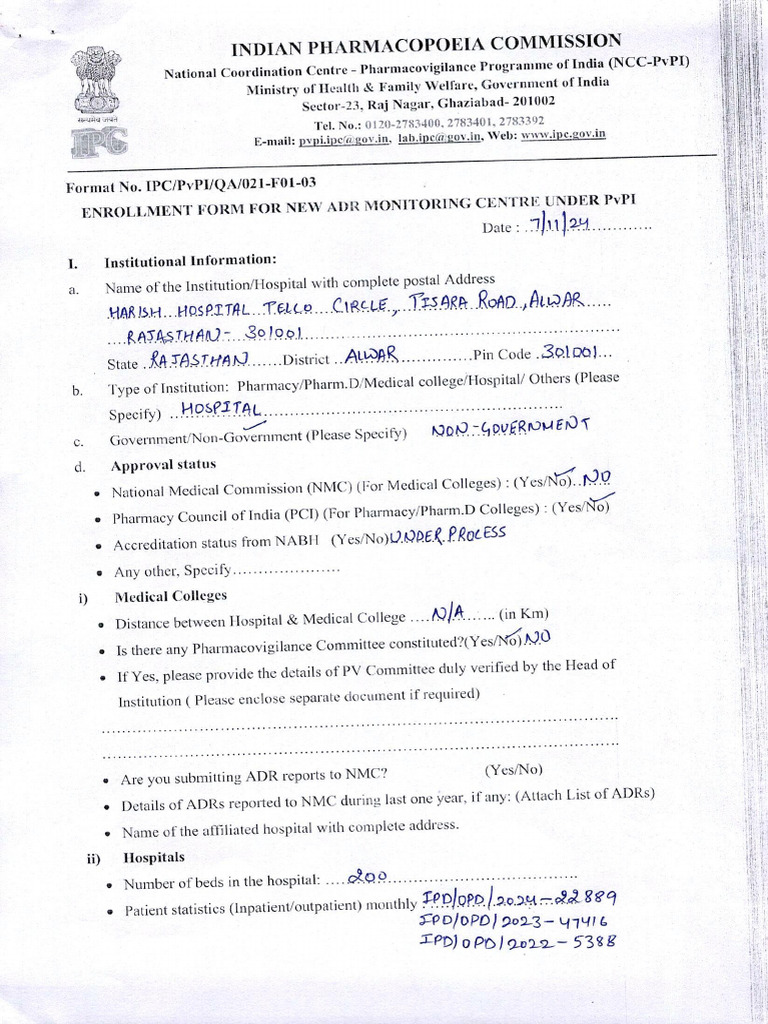 INDIAN PHARMACOPOEIA COMMISSION
National Coordination Centre - Pharmacovigilance Programme of India (NCC-PvPI)
Ministry of Health & Family Welfare, Government of India
Sector-23, Raj Nagar, Ghaziabad- 201002
Tel. No.: 0120-2783400, 2783401, 2783392
E-mail: pvpi.ipc@gov.in, lab.ipc@gov.in, Web: www.ipc.gov.in
सत्यमेव जयते
IPC
Format No. IPC/PvPI/QA/021-F01-03
ENROLLMENT FORM FOR NEW ADR MONITORING CENTRE UNDER PvPI
Date : ..7/11/24............
I. Institutional Information:
a. Name of the Institution/Hospital with complete postal Address
HARISH HOSPITAL TELCO CIRCLE, TIJARA ROAD, ALWAR
RAJASTHAN- 301001
State RAJASTHAN District ALWAR Pin Code 301001
b. Type of Institution: Pharmacy/Pharm.D/Medical college/Hospital/ Others (Please
Specify) HOSPITAL
c. Government/Non-Government (Please Specify) NON-GOVERNMENT
d. Approval status
• National Medical Commission (NMC) (For Medical Colleges) : (Yes/No) NO
• Pharmacy Council of India (PCI) (For Pharmacy/Pharm.D Colleges) : (Yes/No)
• Accreditation status from NABH (Yes/No) UNDER PROCESS
• Any other, Specify....................
i) Medical Colleges
• Distance between Hospital & Medical College ....N/A...... (in Km)
• Is there any Pharmacovigilance Committee constituted?(Yes/No) NO
• If Yes, please provide the details of PV Committee duly verified by the Head of
Institution ( Please enclose separate document if required)
• Are you submitting ADR reports to NMC? (Yes/No)
• Details of ADRs reported to NMC during last one year, if any: (Attach List of ADRs)
• Name of the affiliated hospital with complete address.
ii) Hospitals
• Number of beds in the hospital: ....200
• Patient statistics (Inpatient/outpatient) monthly IPD/OPD/2024-22889
IPD/OPD/2023-47416
IPD/OPD/2022-5388